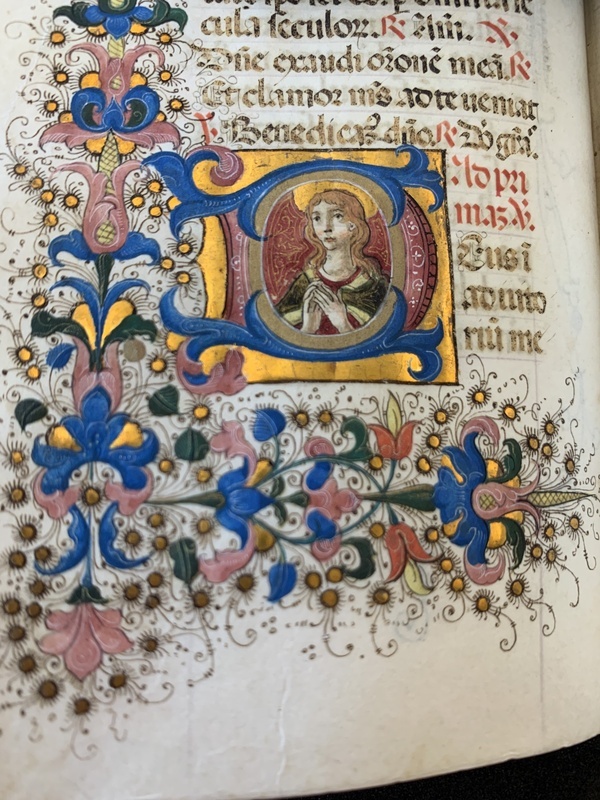 cula seculoꝝ. ℟ Am̄. ℣.
Dn̄e exaudi or̄onē meā. ℟
Et clamor m̄s ad te ueniat
℣ Benedicam̄ꝰ dn̄o. ℟ Dō gr̄as.
Ad pri
maȝ. ℣.
Deus ī
adiuto
riū me